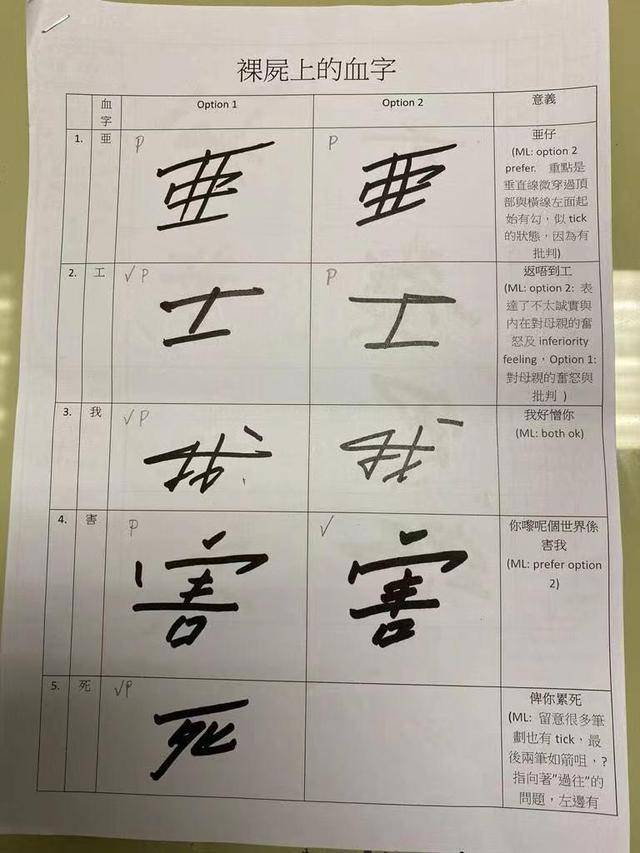 裸屍上的血字
血字 Option 1 Option 2 意義
1. 亜 P 亜 P 亜 亜仔
(ML: option 2
prefer. 重點是
垂直線微穿過頂
部與橫線左面起
始有勾，似 tick
的狀態，因為有
批判)
2. 工 √ P 工 P 工 返唔到工
(ML: option 2: 表
達了不太誠實與
內在對母親的奮
怒及 inferiority
feeling，Option 1:
對母親的奮怒與
批判 )
3. 我 √ P 我 我 我好憎你
(ML: both ok)
4. 害 P 害 √ 害 你嚟呢個世界係
害我
(ML: prefer option
2)
5. 死 √ P 死 俾你累死
(ML: 留意很多筆
劃也有 tick，最
後兩筆如箭咀，?
指向著"過往"的
問題，左邊有